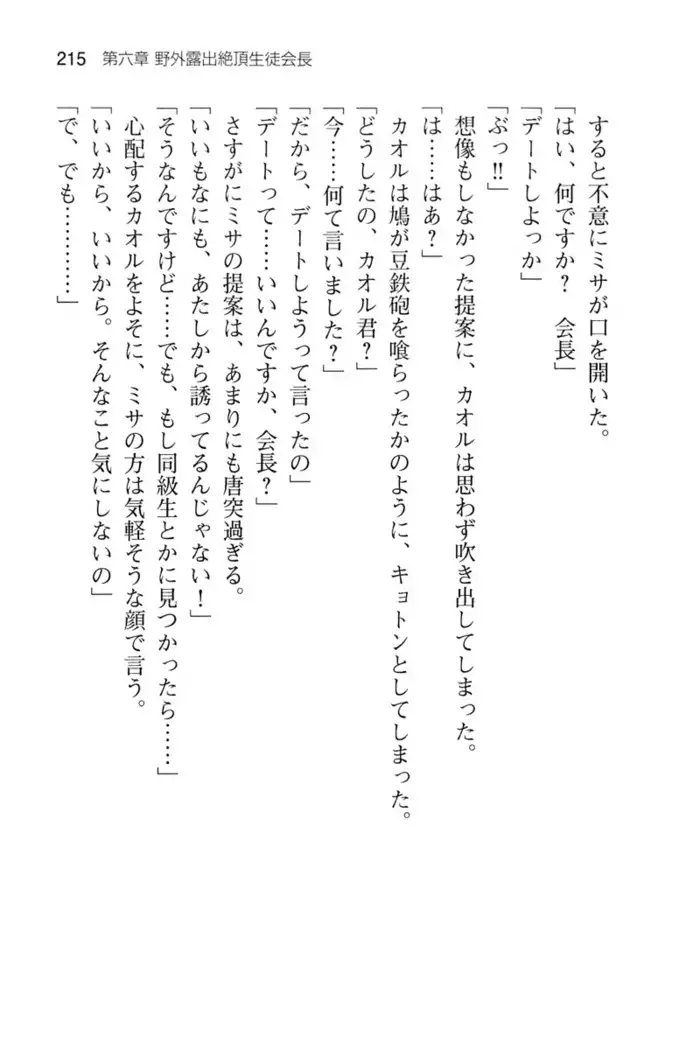 215 第六章 野外露出絶頂生徒会長
すると不意にミサが口を開いた。
「はい、何ですか？　会長」
「デートしよっか」
「ぶっ‼」
想像もしなかった提案に、カオルは思わず吹き出してしまった。
「は……はあ？」
カオルは鳩が豆鉄砲を喰らったかのように、キョトンとしてしまった。
「どうしたの、カオル君？」
「今……何て言いました？」
「だから、デートしようって言ったの」
「デートって……いいんですか、会長？」
さすがにミサの提案は、あまりにも唐突過ぎる。
「いいもなにも、あたしから誘ってるんじゃない！」
「そうなんですけど……でも、もし同級生とかに見つかったら……」
心配するカオルをよそに、ミサの方は気軽そうな顔で言う。
「いいから、いいから。そんなこと気にしないの」
「で、でも…………」